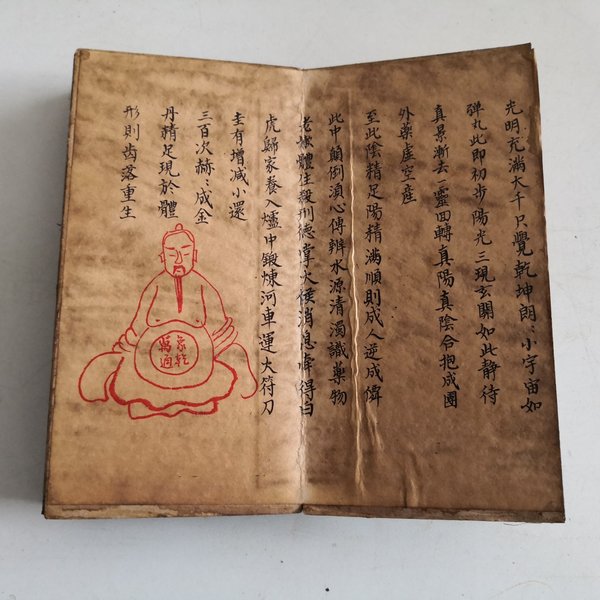 光明充滿大千尺覺乾坤朗〻小宇宙如
弹丸此即初步陽光三現玄關如此静待
真景漸去一靈回轉真陽真陰合抱成團
外藥虛空産
至此陰精足陽精满順則成人逆成僊
此中顛倒湏心傳辨水源清濁識藥物
老嫩體住殺刑德掌火侯消息得白
虎歸家養入爐中鍛煉河車運火符刀
圭有增减小還
三百次赫〻成金
丹精足現於體
形則齿落重生
家乾